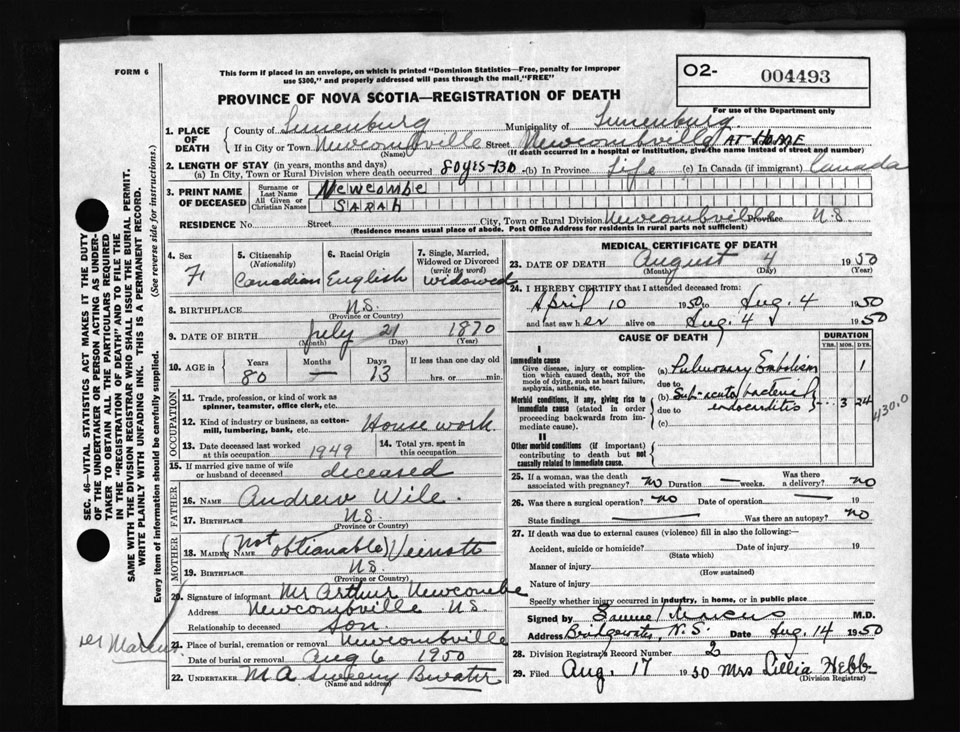 FORM 6
This form if placed in an envelope, on which is printed "Dominion Statistics—Free, penalty for improper
use $300," and properly addressed will pass through the mail, "FREE"
O2- 004493
PROVINCE OF NOVA SCOTIA—REGISTRATION OF DEATH
For use of the Department only
1. PLACE OF DEATH
County of Lunenburg Municipality of Lunenburg
If in City or Town Newcombville Street Newcombville AT HOME
(Name) (If death occurred in a hospital or institution, give the name instead of street and number)
2. LENGTH OF STAY (in years, months and days)
(a) In City, Town or Rural Division where death occurred 80 yrs-13D (b) In Province Life (c) In Canada (if immigrant) Canada
3. PRINT NAME OF DECEASED
Surname or Last Name NEWCOMBE
All Given or Christian Names SARAH
RESIDENCE No. Street City, Town or Rural Division Newcombville Province N.S
(Residence means usual place of abode. Post Office Address for residents in rural parts not sufficient)
4. Sex F
5. Citizenship (Nationality) Canadian
6. Racial Origin English
7. Single, Married, Widowed or Divorced (write the word) widowed
8. BIRTHPLACE N.S.
(Province or Country)
9. DATE OF BIRTH July 21 1870
(Month) (Day) (Year)
10. AGE in Years 80 Months — Days 13 If less than one day old hrs. or min.
OCCUPATION
11. Trade, profession, or kind of work as spinner, teamster, office clerk, etc.
12. Kind of industry or business, as cotton-mill, lumbering, bank, etc. House work.
13. Date deceased last worked at this occupation 1949
14. Total yrs. spent in this occupation
15. If married give name of wife or husband of deceased deceased
FATHER
16. NAME Andrew Wile.
17. BIRTHPLACE N.S.
(Province or Country)
MOTHER
18. MAIDEN NAME (Not obtianable) Veinott
19. BIRTHPLACE N.S.
(Province or Country)
20. Signature of informant Mr Arthur Newcombe
Address Newcombville N.S.
Relationship to deceased son.
21. Place of burial, cremation or removal Newcombville
Date of burial or removal Aug 6 1950
22. UNDERTAKER M A Sweeny Bwater
(Name and address)
MEDICAL CERTIFICATE OF DEATH
23. DATE OF DEATH August 4 1950
(Month) (Day) (Year)
24. I HEREBY CERTIFY that I attended deceased from:
April 10 1950 to Aug. 4 1950
and last saw her alive on Aug. 4 1950
CAUSE OF DEATH
DURATION
YRS. MOS. DYS.
I
Immediate cause
Give disease, injury or complication which caused death, not the mode of dying, such as heart failure, asphyxia, asthenia, etc.
(a) Pulmonary Embolism 1
due to
Morbid conditions, if any, giving rise to immediate cause (stated in order proceeding backwards from immediate cause).
(b) Sub-acute bacterial endocarditis 3 24
due to
(c)
430.0
II
Other morbid conditions (if important) contributing to death but not causally related to immediate cause.
25. If a woman, was the death associated with pregnancy? no Duration — weeks. Was there a delivery? no
26. Was there a surgical operation? no Date of operation — 19
State findings Was there an autopsy? no
27. If death was due to external causes (violence) fill in also the following:—
Accident, suicide or homicide? Date of injury 19
(State which)
Manner of injury
(How sustained)
Nature of injury
Specify whether injury occurred in industry, in home, or in public place
Signed by Samuel Marcus M.D.
Address Bridgewater, N.S. Date Aug. 14 1950
28. Division Registrar's Record Number 2
29. Filed Aug. 17 1950 Mrs Lillia Hebb
(Division Registrar)
SEC. 46—VITAL STATISTICS ACT MAKES IT THE DUTY
OF THE UNDERTAKER OR PERSON ACTING AS UNDER-
TAKER TO OBTAIN ALL THE PARTICULARS REQUIRED
IN THE "REGISTRATION OF DEATH" AND TO FILE THE
SAME WITH THE DIVISION REGISTRAR WHO SHALL ISSUE THE BURIAL PERMIT.
WRITE PLAINLY WITH UNFADING INK. THIS IS A PERMANENT RECORD.
Every item of information should be carefully supplied. (See reverse side for instructions.)
Marcus